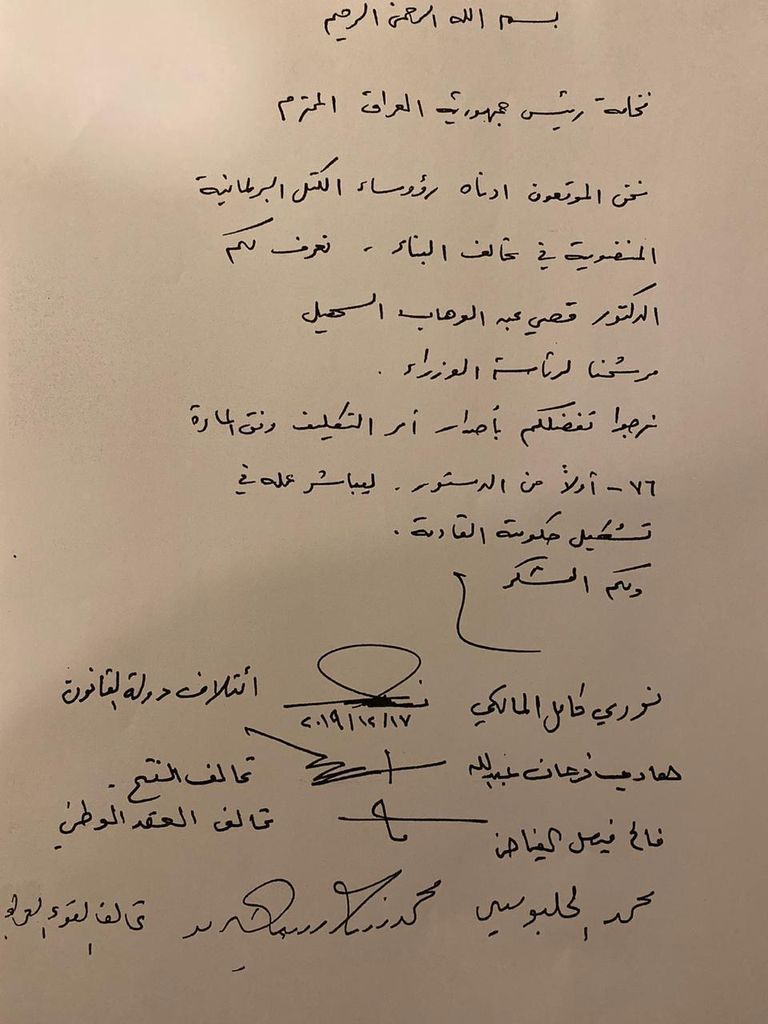 بسم الله الرحمن الرحيم
فخامة رئيس جمهورية العراق المحترم
نحن الموقعون ادناه رؤوساء الكتل البرلمانية
المنضوية في تحالف البناء - نعرف لكم
الدكتور قصي عبد الوهاب السهيل
مرشحنا لرئاسة الوزراء .
نرجوا تفضلكم بأصدار أمر التكليف وفق المادة
٧٦ - أولاً من الدستور . ليباشر عمله في
تشكيل حكومته القادمة .
ولكم الشكر
نوري كامل المالكي ائتلاف دولة القانون
٢٠١٩/١٢/١٧
هادي فرحان عبدالله تحالف الفتح .
فالح فيصل الفياض تحالف العقد الوطني
محمد الحلبوسي تحالف القوى